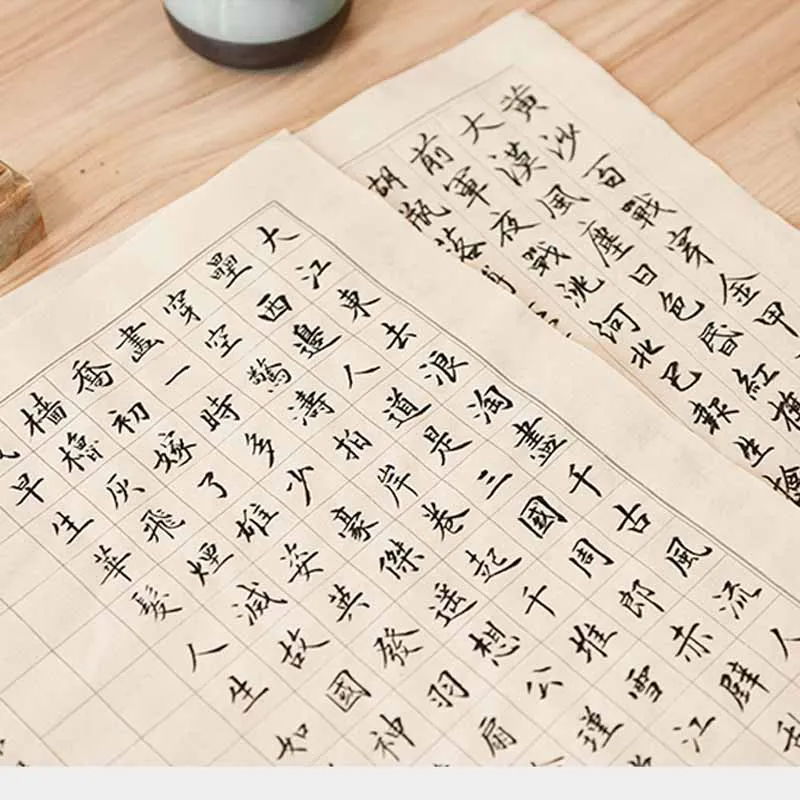 黃沙百戰穿金甲
大漠風塵日色昏紅旗
前軍夜戰洮河北已報生擒
胡瓶落
大江東去浪淘盡千古風流人
壘西邊人道是三國周郎赤壁亂
穿空驚濤拍岸卷起千堆雪江
畫一時多少豪傑遥想公瑾
喬初嫁了雄姿英發羽扇
檣櫓灰飛煙滅故國神
早生華髮人生如